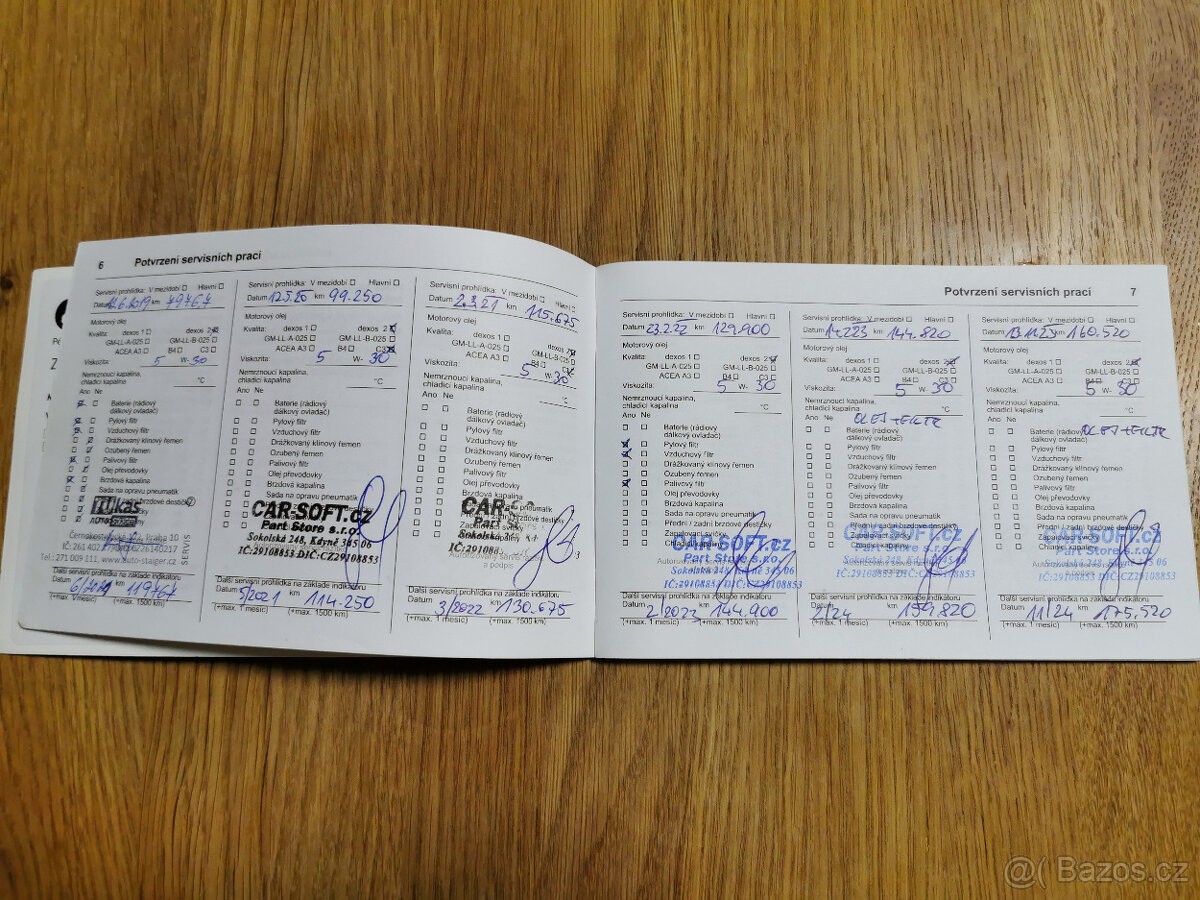 6 Potvrzení servisních prací
Servisní prohlídka: V mezidobí Hlavní
Datum 12.6.2019 km 79767
Motorový olej
Kvalita: dexos 1 dexos 2
GM-LL-A-025 GM-LL-B-025
ACEA A3 B4 C3
Viskozita: 5 W- 30
Nemrznoucí kapalina,
chladicí kapalina °C
Ano Ne
Baterie (rádiový
dálkový ovladač)
Pylový filtr
Vzduchový filtr
Drážkovaný klínový řemen
Ozubený řemen
Palivový filtr
Olej převodovky
Brzdová kapalina
Sada na opravu pneumatik
brzdové destičky
Tukas
AUTOSALON
Praha 10
Tel.: 271 009 111, www.auto-staiger.cz
SERVIS
Další servisní prohlídka na základě indikátoru
Datum km 119767
(+max. 1 měsíc) (+max. 1500 km)
Servisní prohlídka: V mezidobí Hlavní
Datum 12.5.20 km 99.250
Motorový olej
Kvalita: dexos 1 dexos 2
GM-LL-A-025 GM-LL-B-025
ACEA A3 B4 C3
Viskozita: 5 W- 30
Nemrznoucí kapalina,
chladicí kapalina °C
Ano Ne
Baterie (rádiový
dálkový ovladač)
Pylový filtr
Vzduchový filtr
Drážkovaný klínový řemen
Ozubený řemen
Palivový filtr
Olej převodovky
Brzdová kapalina
Sada na opravu pneumatik
CAR-SOFT.CZ
Part Store s.r.o.
Sokolská 248, Kdyně 345 06
IČ:29108853 DIČ:CZ29108853
Další servisní prohlídka na základě indikátoru
Datum 5/2021 km 114.250
(+max. 1 měsíc) (+max. 1500 km)
Servisní prohlídka: V mezidobí Hlavní
Datum 2.3.21 km 115.675
Motorový olej
Kvalita: dexos 1 dexos 2
GM-LL-A-025 GM-LL-B-025
ACEA A3 B4 C3
Viskozita: 5 W- 30
Nemrznoucí kapalina,
chladicí kapalina °C
Ano Ne
Baterie (rádiový
dálkový ovladač)
Pylový filtr
Vzduchový filtr
Drážkovaný klínový řemen
Ozubený řemen
Palivový filtr
Olej převodovky
Brzdová kapalina
Sada na opravu pneumatik
brzdové destičky
CAR-S
Part
Sokolská
IČ:29108
a podpis
Další servisní prohlídka na základě indikátoru
Datum 3/2022 km 130.675
(+max. 1 měsíc) (+max. 1500 km)
Potvrzení servisních prací 7
Servisní prohlídka: V mezidobí Hlavní
Datum 23.2.22 km 129.900
Motorový olej
Kvalita: dexos 1 dexos 2
GM-LL-A-025 GM-LL-B-025
ACEA A3 B4 C3
Viskozita: 5 W- 30
Nemrznoucí kapalina,
chladicí kapalina °C
Ano Ne
Baterie (rádiový
dálkový ovladač)
Pylový filtr
Vzduchový filtr
Drážkovaný klínový řemen
Ozubený řemen
Palivový filtr
Olej převodovky
Brzdová kapalina
Sada na opravu pneumatik
Přední / zadní brzdové destičky
Zapalovací svíčky
CAR-SOFT.CZ
Part Store s.r.o.
Sokolská 248, Kdyně 345 06
IČ:29108853 DIČ:CZ29108853
Další servisní prohlídka na základě indikátoru
Datum 2/2023 km 144.900
(+max. 1 měsíc) (+max. 1500 km)
Servisní prohlídka: V mezidobí Hlavní
Datum km 144.820
Motorový olej
Kvalita: dexos 1 dexos 2
GM-LL-A-025 GM-LL-B-025
ACEA A3 B4 C3
Viskozita: 5 W- 30
Nemrznoucí kapalina,
chladicí kapalina °C
Ano Ne OLEJ+FILTR
Baterie (rádiový
dálkový ovladač)
Pylový filtr
Vzduchový filtr
Drážkovaný klínový řemen
Ozubený řemen
Palivový filtr
Olej převodovky
Brzdová kapalina
Sada na opravu pneumatik
Přední / zadní brzdové destičky
CAR-SOFT.CZ
Part Store s.r.o.
Sokolská 248, Kdyně 345 06
IČ:29108853 DIČ:CZ29108853
Další servisní prohlídka na základě indikátoru
Datum 2/24 km 159.820
(+max. 1 měsíc) (+max. 1500 km)
Servisní prohlídka: V mezidobí Hlavní
Datum 13.11.23 km 160.520
Motorový olej
Kvalita: dexos 1 dexos 2
GM-LL-A-025 GM-LL-B-025
ACEA A3 B4 C3
Viskozita: 5 W- 30
Nemrznoucí kapalina,
chladicí kapalina °C
Ano Ne
Baterie (rádiový OLEJ+FILTR
dálkový ovladač)
Pylový filtr
Vzduchový filtr
Drážkovaný klínový řemen
Ozubený řemen
Palivový filtr
Olej převodovky
Brzdová kapalina
Sada na opravu pneumatik
Přední / zadní brzdové destičky
Zapalovací svíčky
Chladicí kapalina
CAR-SOFT.CZ
Part Store s.r.o.
Sokolská 248, Kdyně 345 06
IČ:29108853 DIČ:CZ29108853
Další servisní prohlídka na základě indikátoru
Datum 11/24 km 175.520
(+max. 1 měsíc) (+max. 1500 km)
Bazos.cz